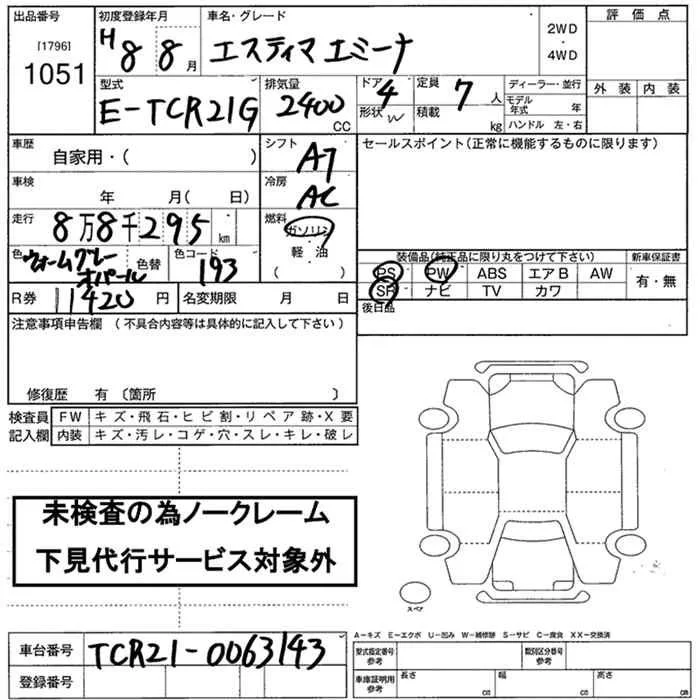 出品番号 初度登録年月 車名・グレード 評価点
[1796] H 8 8 月 エスティマ エミーナ 2WD
1051 ・
4WD
型式 排気量 ドア 定員 ディーラー・並行 外装 内装
E-TCR21G 2400 CC 4 形状 W 積載 7 人 kg モデル年式 年
ハンドル 左・右
車歴 シフト セールスポイント(正常に機能するものに限ります)
自家用・( ) AT
車検 冷房
年 月( 日) AC
走行 燃料
8万8千295 km ガソリン
色 ウォームグレーオパール 色替 色コード 193 軽・油
( )
装備品(純正品に限り丸をつけて下さい) 新車保証書
PS PW ABS エアB AW 有・無
SR ナビ TV カワ
R券 11420 円 名変期限 月 日 後日品
注意事項申告欄 (不具合内容等は具体的に記入して下さい)
修復歴 有 〔箇所 〕
検査員 FW キズ・飛石・ヒビ割・リペア跡・X要
記入欄 内装 キズ・汚レ・コゲ・穴・スレ・キレ・破レ
未検査の為ノークレーム
下見代行サービス対象外
スペア
A-キズ E-エクボ U-凹み W-補修跡 S-サビ C-腐食 XX-交換済
車台番号 TCR21-0063143 型式指定番号 参考 類別区分番号 参考
登録番号 車庫証明用 参考 長さ cm 幅 cm 高さ cm